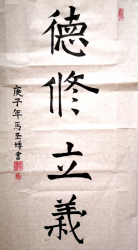 德修立義
庚子年馬玉博書